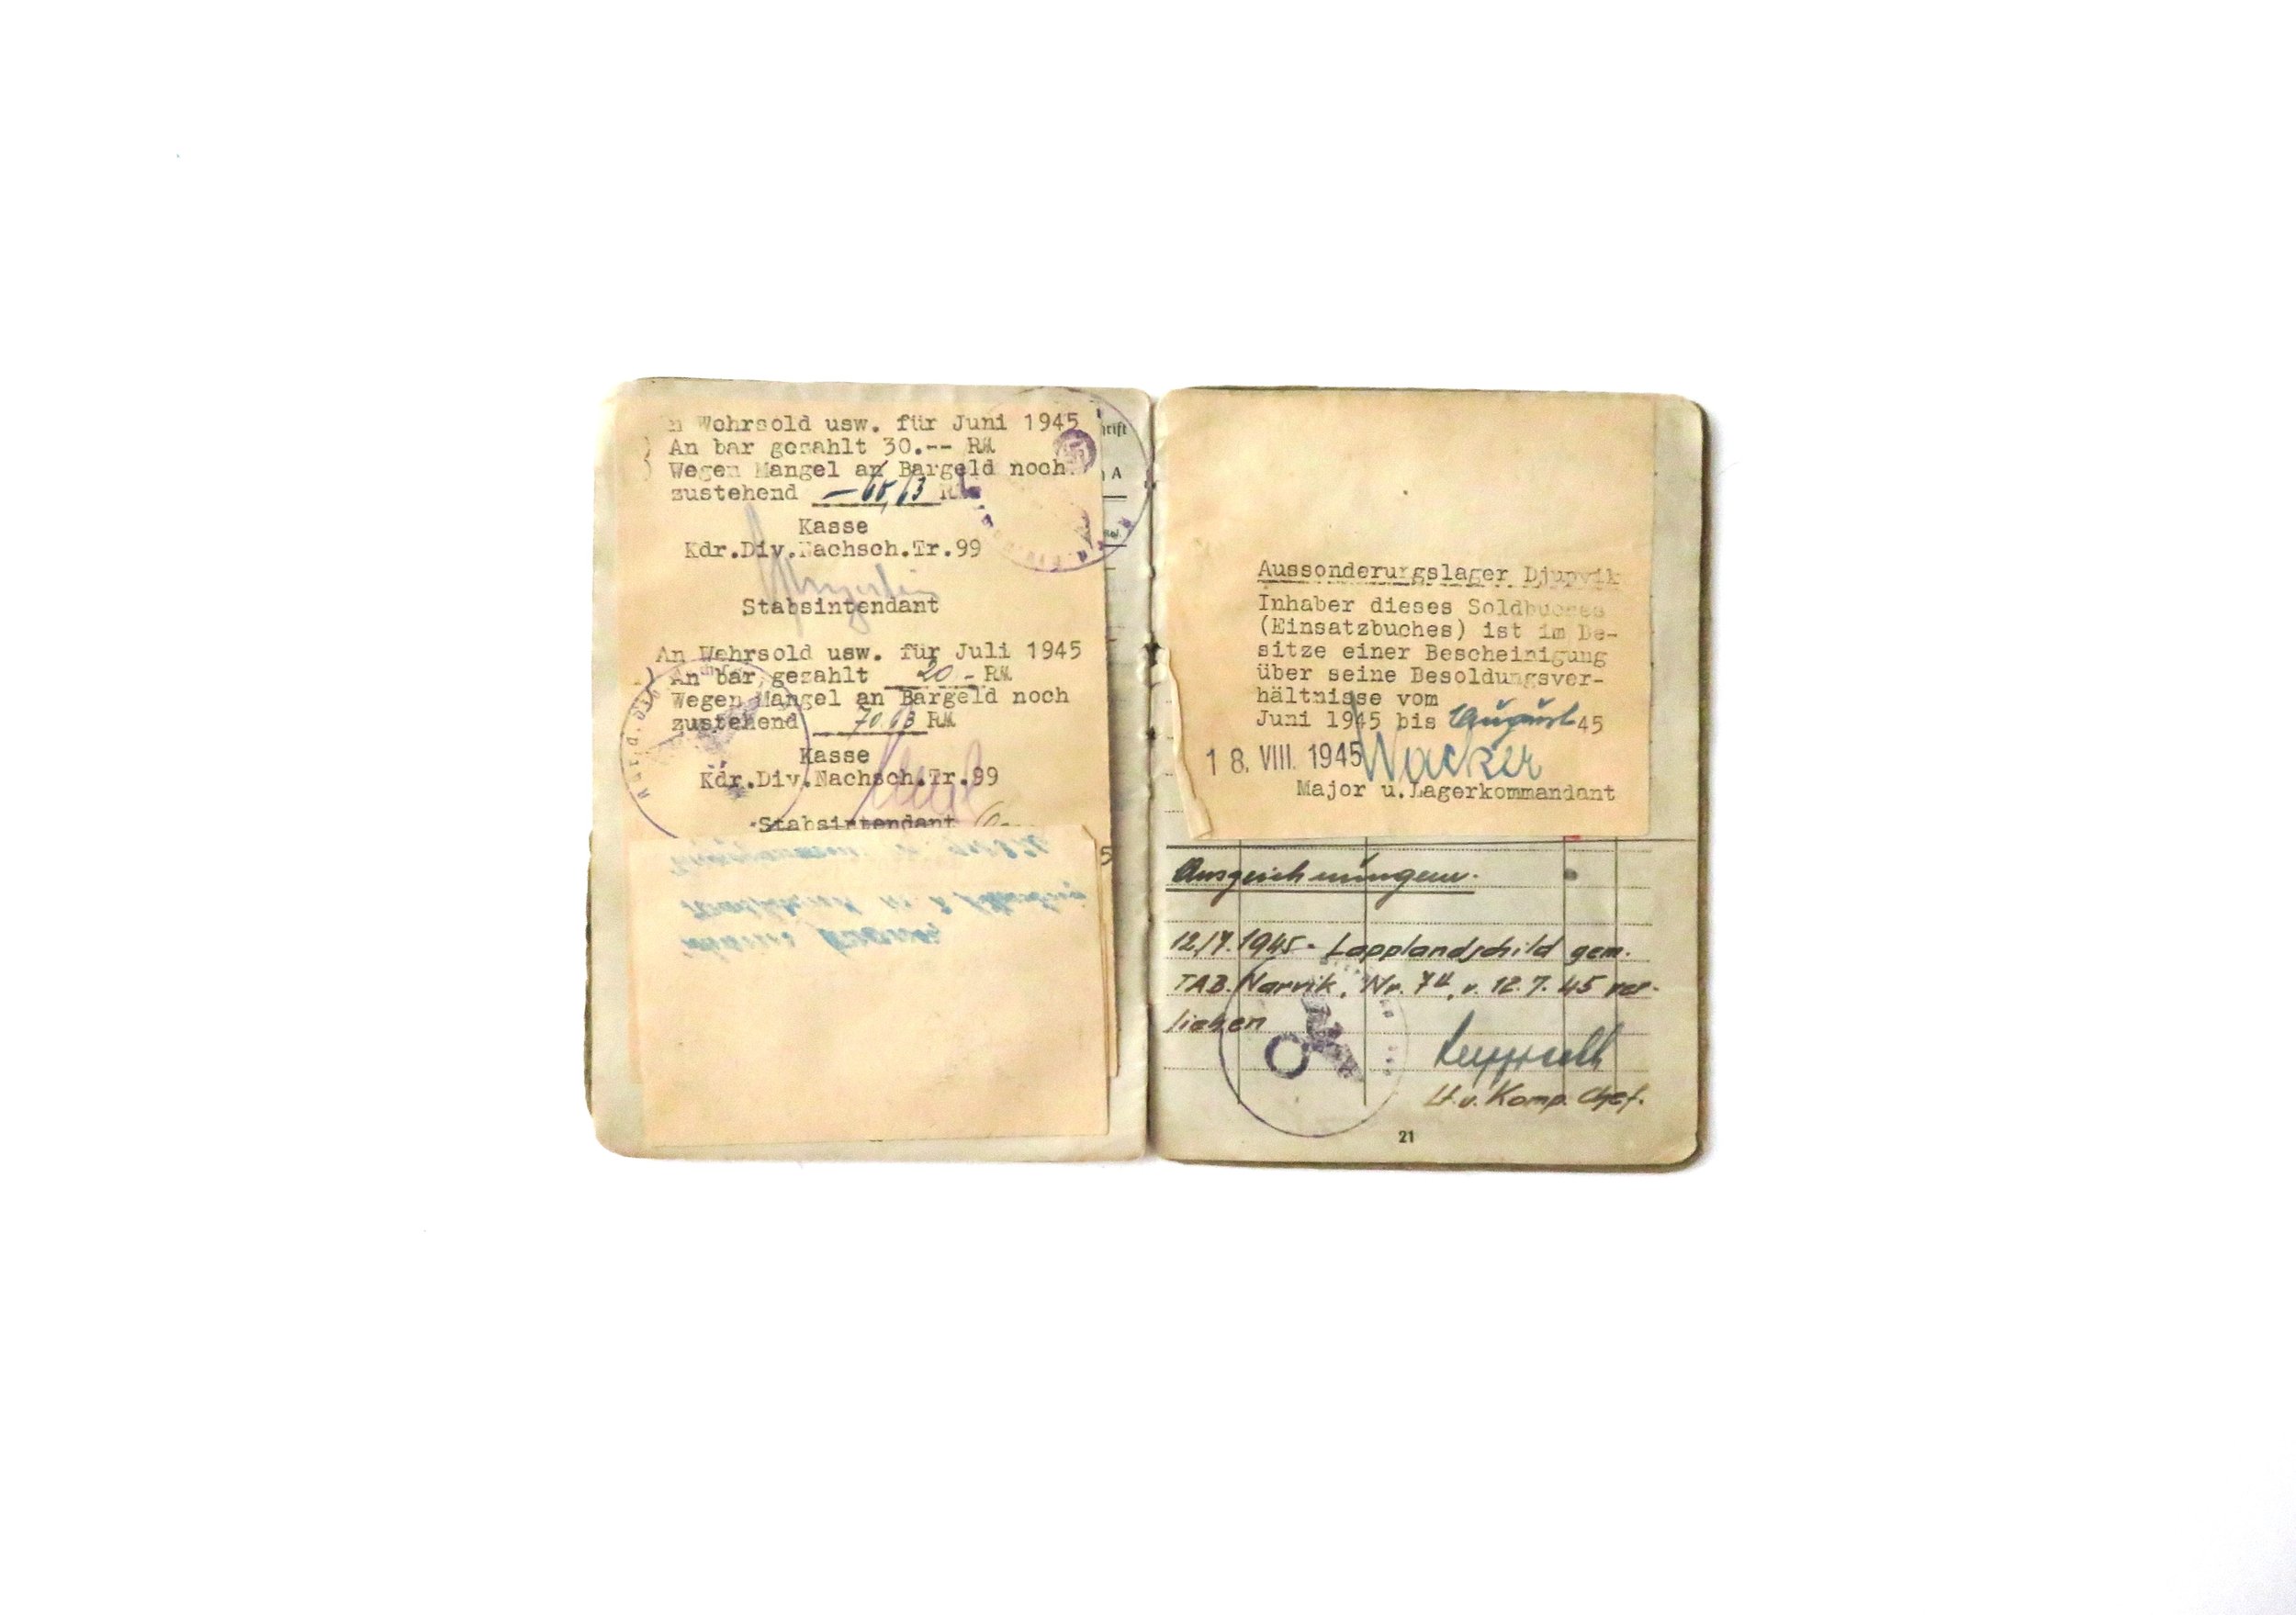 n Wehrsold usw. für Juni 1945
An bar gezahlt 30.-- RM
Wegen Mangel an Bargeld noch
zustehend RM
Kasse
Kdr.Div.Nachsch.Tr.99
Stabsintendant
An Wehrsold usw. für Juli 1945
An bar gezahlt 20.- RM
Wegen Mangel an Bargeld noch
zustehend 70,63 RM
Kasse
Kdr.Div.Nachsch.Tr.99
Stabsintendant
hrift
A
5
Aussonderungslager Djupvik
Inhaber dieses Soldbuches
(Einsatzbuches) ist im Be-
sitze einer Bescheinigung
über seine Besoldungsver-
hältnisse vom
Juni 1945 bis August 45
18. VIII. 1945 Wacker
Major u.Lagerkommandant
Auszeichnungen.
12/7.1945. Lapplandschild gem.
TAB. Narvik, Nr. 74, v. 12.7.45 ver-
liehen
Lt. u. Komp. Chef.
21